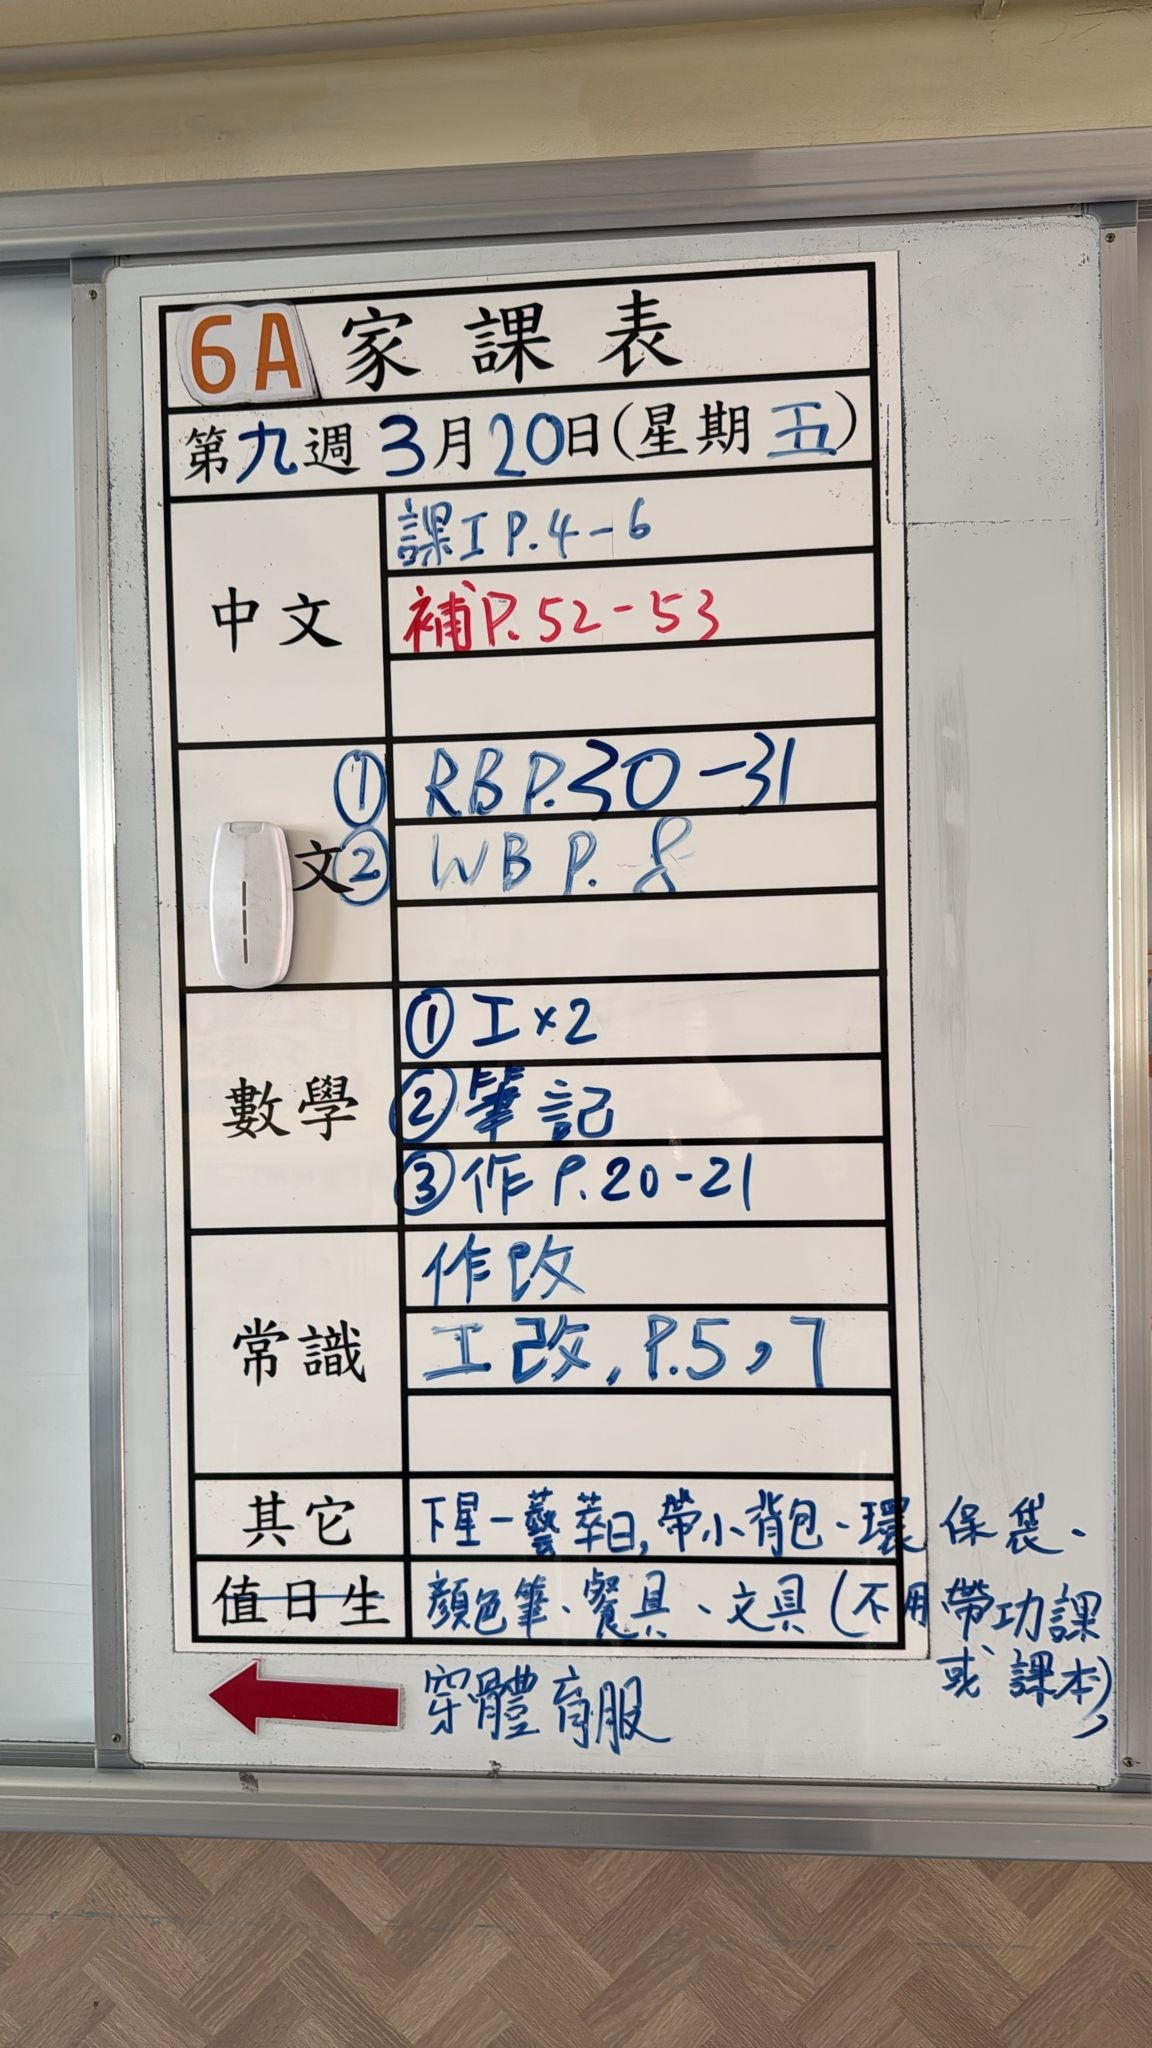 6A 家課表
第九週 3月20日(星期五)
中文
課工 P.4-6
補 P.52-53
文
① RB P.30-31
② WB P.8
數學
① 工×2
② 筆記
③ 作 P.20-21
常識
作改
工改, P.5,7
其它
下星一藝萃日,帶小背包、環保袋、
值日生
顏色筆、餐具、文具(不用帶功課
或課本)
穿體育服